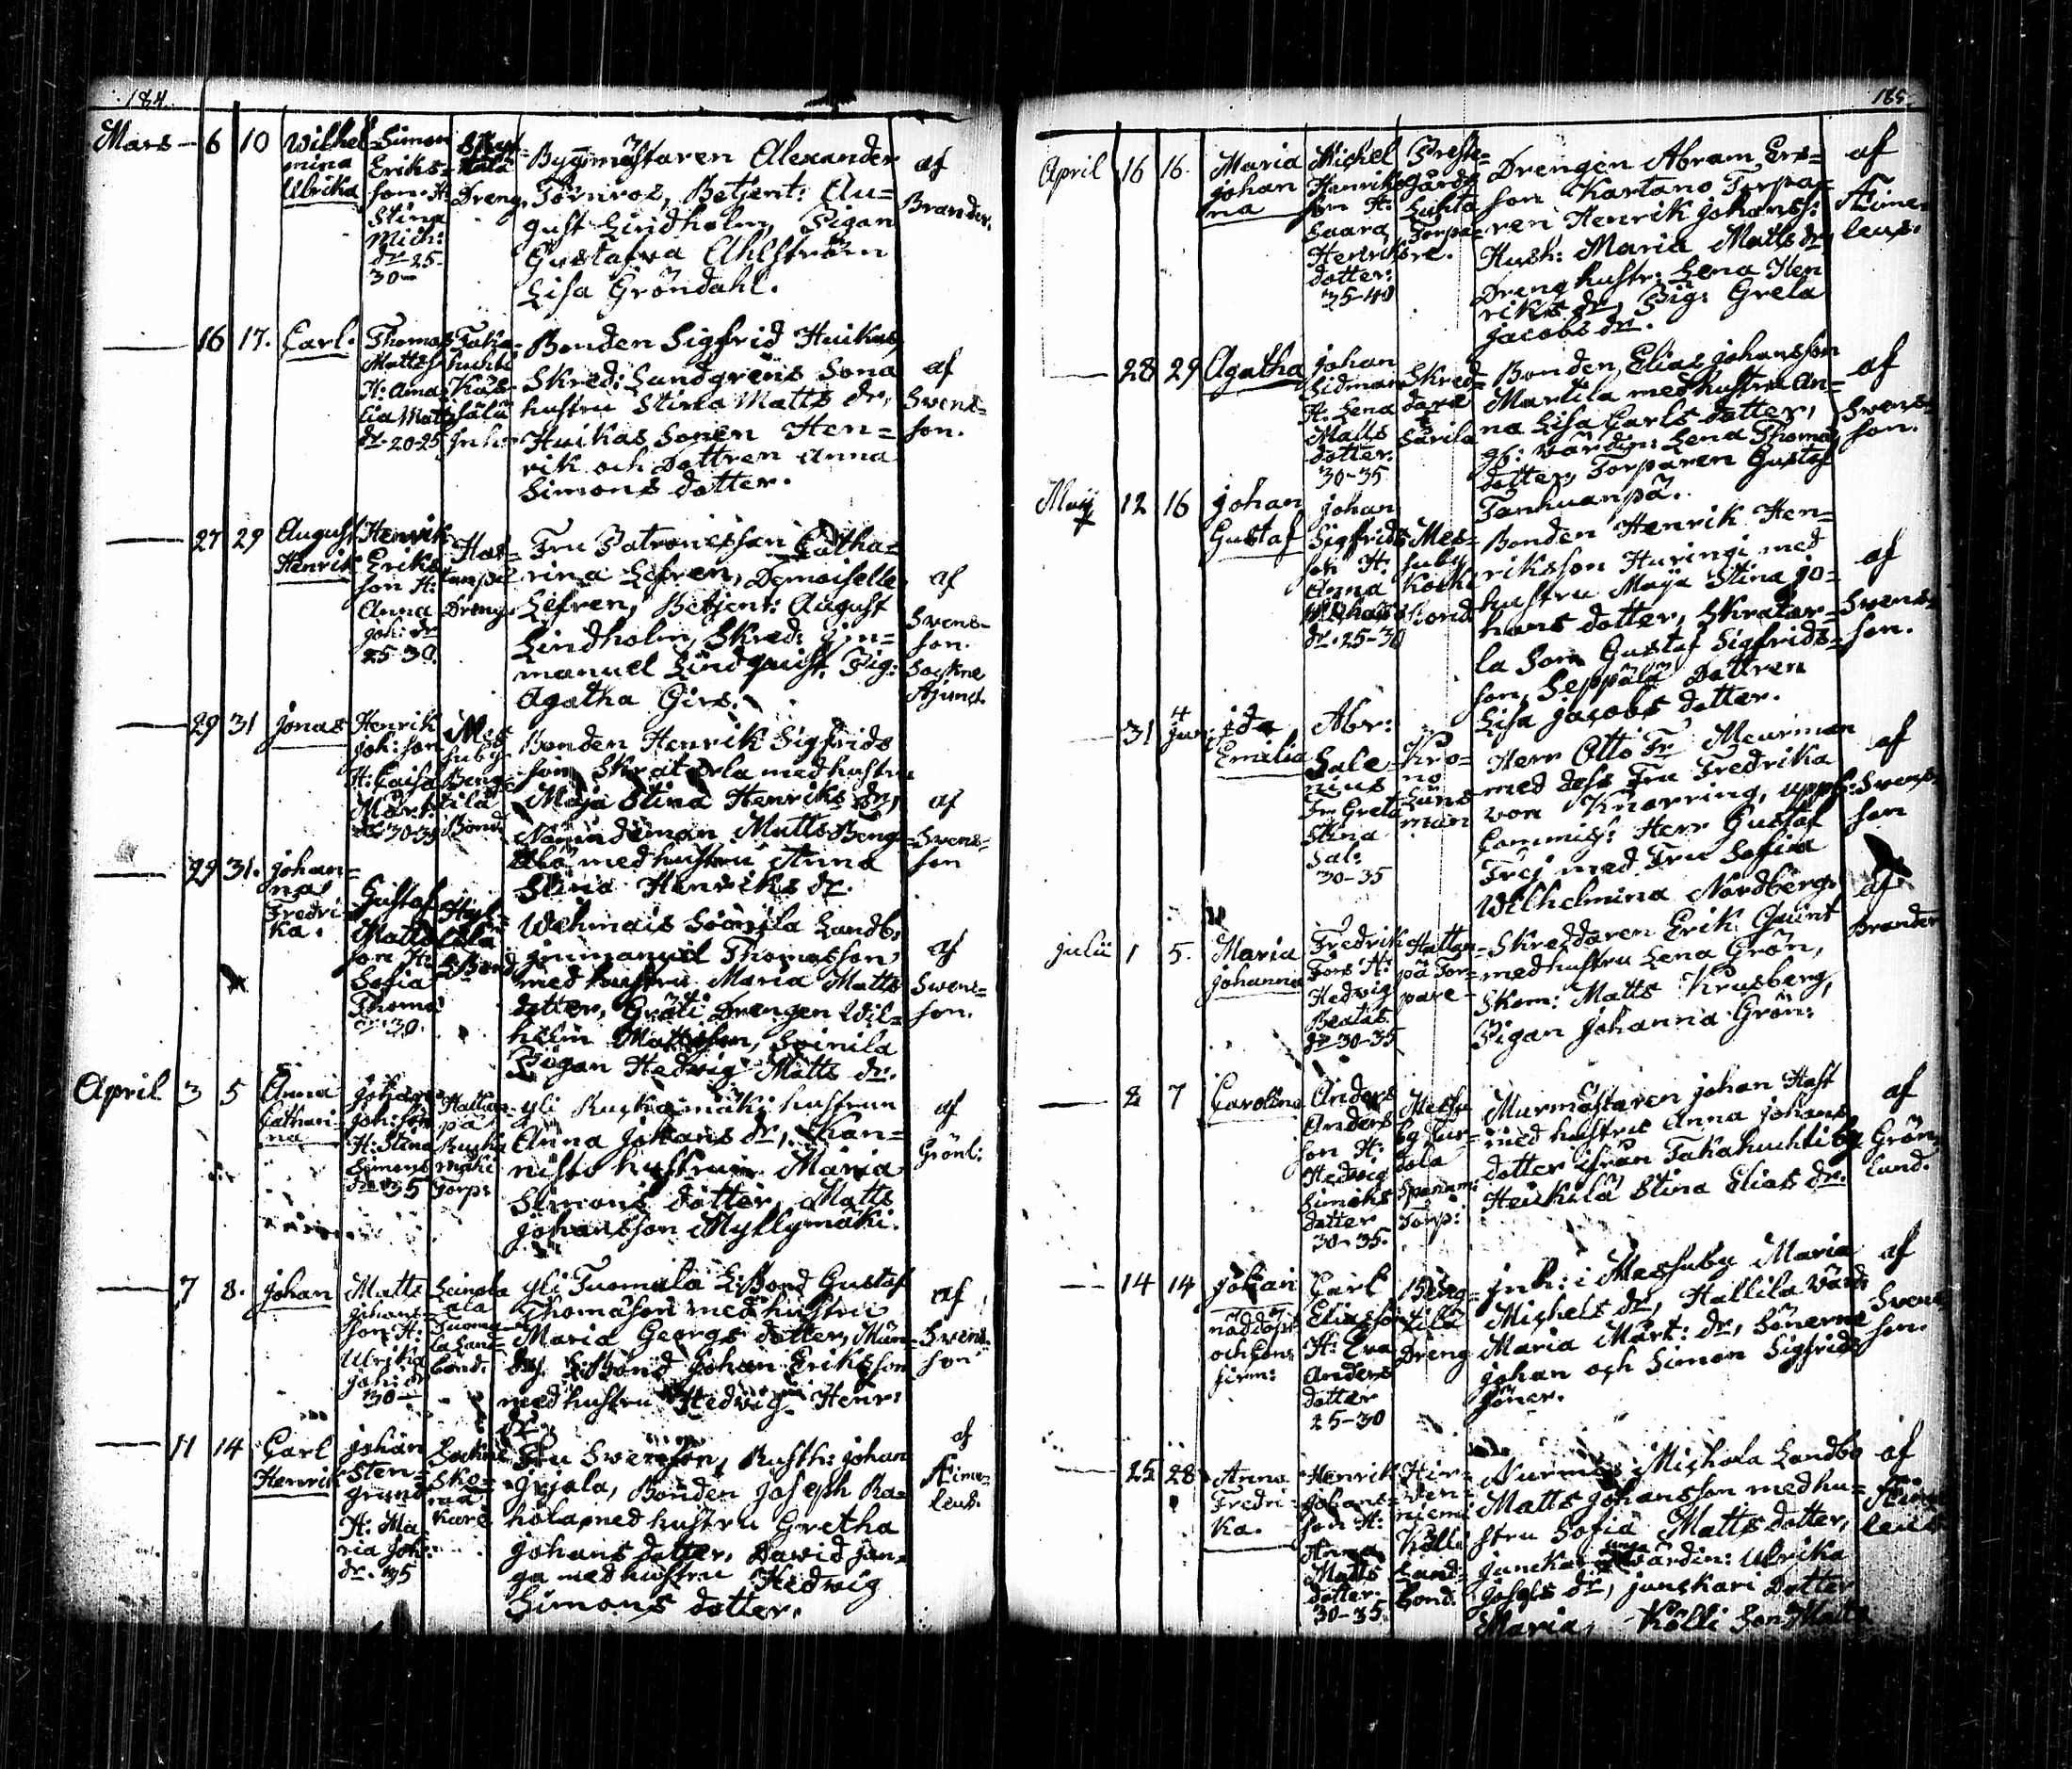 184
Mars - 6 10 Wilhel-
mina
Ulrika
Simon
Eriks-
son. H.
Stina
Mich:
dr 25.
30-
Dreng.
Byggmästaren Alexander
Törnros, Betjent: Au-
gust Lindholm, Pigan
Gustafva Ahlström
Lisa Gröndahl.
af
Brander.
16 17. Carl.
Thomas
Matts
H: Ama-
lia Matts
dr. 20-25
Bonden Sigfrid Huikas,
Skred: Sundgrens Sona
hustru Stina Matts dr,
Huikas Sonen Hen-
rik och Dottren Anna
Simons dotter.
af
Svens-
son.
27 29 August
Henrik
Henrik
Eriks
son H:
Anna
Joh: dr
25-30.
Dreng
Fru Patronessan Catha-
rina Lefren, Demoiselle
Lefren, Betjent: August
Lindholm, Skred: Im-
manuel Lindquist, Pig:
Agatha Girs.
af
Svens-
son.
Sockne
Adjunct.
29 31 Jonas
Henrik
Joh: son
H: Caisa
Märt:
dr 30-35
Mes
suby
Beng-
tilä
Bond
Bonden Henrik Sigfrids
son Skratarla med hustru
Maja Stina Henriks dr,
Nämndeman Matts Beng-
med hustru Anna
Stina Henriks dr.
af
Svens-
son
29 31. Johan-
na
Fredri-
ka.
Gustaf
Matts
son H:
Sofia
Thoms
dr 30.
Landb:
Immanuel Thomasson,
med hustru Maria Matts
dotter, Drengen Wil-
helm Mattsson, Soinila
Pigan Hedvig Matts dr.
af
Svens-
son.
April 3 5 Anna
Cathari-
na
Johan
Joh: son
H: Stina
Simons
dr 35
Hattan-
pä
Ruska
mäki
Torp:
Yli Ruskamäki hustrun
Anna Johans dr, Kan-
nisto hustrun Maria
Simons dotter, Matts
Johansson Myllymäki.
af
Grönl:
7 8. Johan
Matts
Johans-
son H:
Ulrika
Joh: dr
30-
Tuoma-
la Land-
bond.
Yli Tuomala L:Bond Gustaf
Thomasson med hustru
Maria Georgs dotter,
L:Bond Johan Eriksson
med hustru Hedvig Henr:
dr.
af
Svens-
son
11 14 Carl
Henrik
Johan
Sten-
grund
H: Ma-
ria Joh:
dr. 35
Sockne
Sko-
ma
kare
Fru Svensson, Rusth: Johan
Bonden Joseph Ra-
hola med hustru Gretha
Johans dotter, David Jan-
ga med hustru Hedvig
Simons dotter.
af
Aime-
leus.
185.
April 16 16. Maria
Johan
na
Michel
Henriks
son H:
Saara
Henriks
dotter.
35-40
Preste-
gårds
Luhta
Torpa-
re.
Drengen Abram Ers-
son Kartano Torpa-
ren Henrik Johanss:
Hust: Maria Matts dr,
Dreng hustr: Lena Hen
riks dr, Pig: Greta
Jacobs dr.
af
Aime-
leus.
28 29 Agatha
Johan
Lidman
H. Lena
Matts
dotter.
30-35
Skred-
dare
Särila
Bonden Elias Johansson
Martila med hustru An-
na Lisa Carls dotter,
Lena Thoms
dotter, Torparen Gustaf
Tanhuanpä.
af
Svens-
son.
Maij 12 16 Johan
Gustaf
Johan
Sigfrids
son H:
Anna
Michels
dr. 25-30
Mes-
suby
Koski
Bond
Bonden Henrik Hen-
riksson Huringi med
hustru Maja Stina Jo-
hans dotter, Skratar-
la Son Gustaf Sigfrids-
son, Seppälä Dottren
Lisa Jacobs dotter.
af
Svens-
son.
31 4
Jun: Ida
Emilia
Abr:
Sale-
nius
Fr Greta
Stina
Sal:
30-35
Kro-
no
Läns
man
Herr Otto Fr Meurman
med dess Fru Fredrika
von Knorring, upps:
Commiss: Herr Gustaf
Frej med Fru Sofia
Wilhelmina Nordberg.
af
Svens-
son
Julii 1 5. Maria
Johanna
Fredrik
Fors H:
Hedvig
Beatas
dr 30-35
Hattan-
pä Tor-
pare-
Skreddaren Erik Quint
med hustru Lena Grön,
Skom: Matts Krusberg,
Pigan Johanna Grön:
af
Brander
2 7 Carolina
Anders
Anders
son H:
Hedvig
Simons
dotter
30-35.
Messu
by
Torp:
Murmästaren Johan Hast
med hustru Anna Johans
dotter ifrån Takahuhti by
Heikkilä Stina Elias dr.
af
Grön-
lund.
14 14 Johan
nöddöpt
och Con-
firm:
Carl
Eliasson
H: Eva
Anders
dotter
25-30
Beng-
tilä
Dreng
Inh: i Messuby Maria
Michels dr, Hallila Värd:
Maria Märt: dr, Sönerne
Johan och Simon Sigfrids
Söner.
af
Svens-
son.
25 28 Anna
Fredri-
ka.
Henrik
Johans-
son H:
Anna
Matts
dotter.
30-35
Hir-
ven-
niemi
Kölli
Land-
bond.
Nurmi Mickola Landbo
Matts Johansson med hu-
stru Sofia Matts dotter,
Junkari unga Värdin: Ulrika
Josefs dr, Junckari Dotter
Maria, Kölli Son Matts
af
Aime-
leus